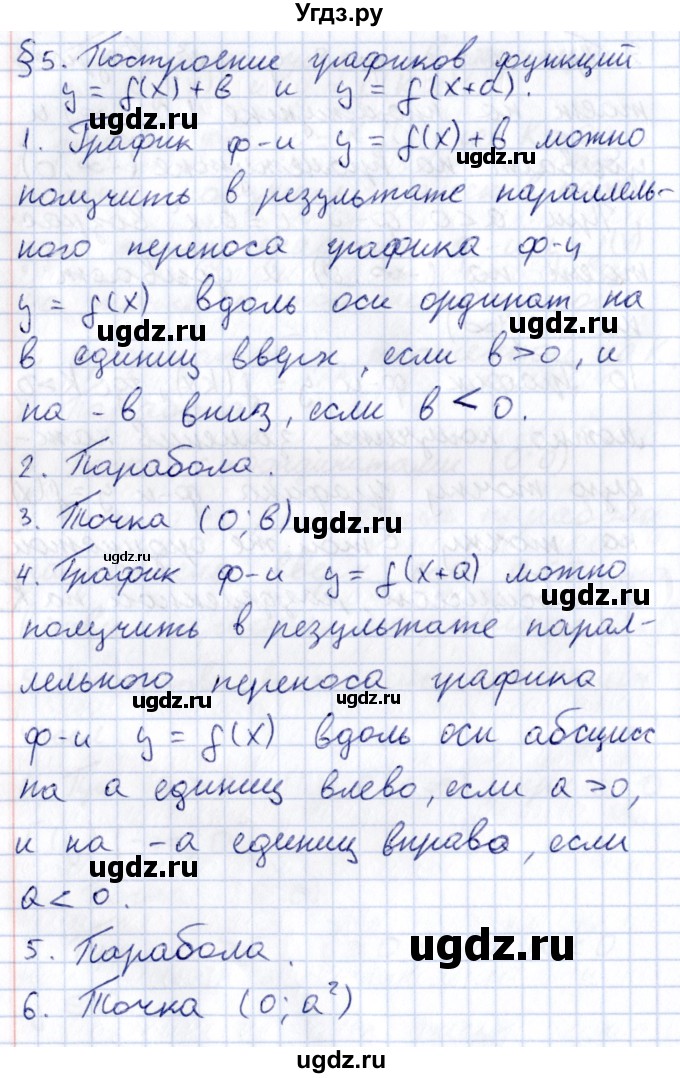 Угдз.ру
§5. Построение графиков функций
y = f(x) + в и y = f(x+a).
ugdz.ru
1. График ф-и y = f(x) + в можно
ugdz.ru
получить в результате параллель-
ного переноса графика ф-и
y = f(x) вдоль оси ординат на
ugdz.ru
ugdz.ru
в единиц вверх, если в > 0, и
на -в вниз, если в < 0.
ugdz.ru
2. Парабола.
3. Точка (0; в)
ugdz.ru
ugdz.ru
4. График ф-и y = f(x+a) можно
ugdz.ru
получить в результате парал-
лельного переноса графика
ugdz.ru
ugdz.ru
ф-и y = f(x) вдоль оси абсцисс
на a единиц влево, если a > 0,
и на -a единиц вправо, если
ugdz.ru
a < 0.
ugdz.ru
5. Парабола.
6. Точка (0; a²)
ugdz.ru